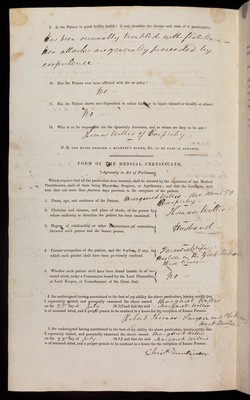 9. Is the Patient in good bodily health? if not, describe the disease and state of it particularly.
Has been occasionally troubled with
Her attacks are generally preceded by
10. Has the Patient ever been afflicted with the or party?
No
11. Has the Patient shown any disposition to either to injure himself or herself, or others?
No
12. Who is to be responsible for the Quarterly Accounts, and to whom are they to be sent?
Thomas Willis of
N. B. THE BOARD REQUIRES A QUARTER'S BOARD, &c. TO BE PAID IN ADVANCE.
FORM OF THE MEDICAL CERTIFICATE,
Agreeably to Act of Parliament,
Which requires that all the particulars here inserted, shall be attested by the signatures of two Medical
Practitioners, each of them being Physician, Surgeon, or Apothecary; and that the Certificate shall
bear date not more than fourteen days previous to the reception of the patient.
1. Name, age, and residence of the Patient. Margaret Willis Age about 50
2. Christian and surname, and place of abode, of the person by
whose authority or direction the patient has been examined.
Thomas Willis
3. Degree of relationship or other circumstance of connexion
between such person and the insane person.
Husband
4. Former occupation of the patient, and the Asylum, if any, in
which such patient shall have been previously confined.
5. Whether such patient shall have been found lunatic or of un-
sound mind, under a Commission issued by the Lord Chancellor,
or Lord Keeper, or Commissioners of the Great Seal.
No
I the undersigned having ascertained to the best of my ability the above particulars, hereby certify that
I separately visited, and personally examined the above named Margaret Willis
on the day of July and that the said Margaret Willis
is of unsound mind, and a proper person to be confined in a house for the reception of Insane Persons.
Robert Surgeon
I the undersigned having ascertained to the best of my ability the above particulars, hereby certify that
I separately visited, and personally examined the above named Margaret Willis
on the day of July and that the said Margaret Willis
is of unsound mind, and a proper person to be confined in a house for the reception of Insane Persons.